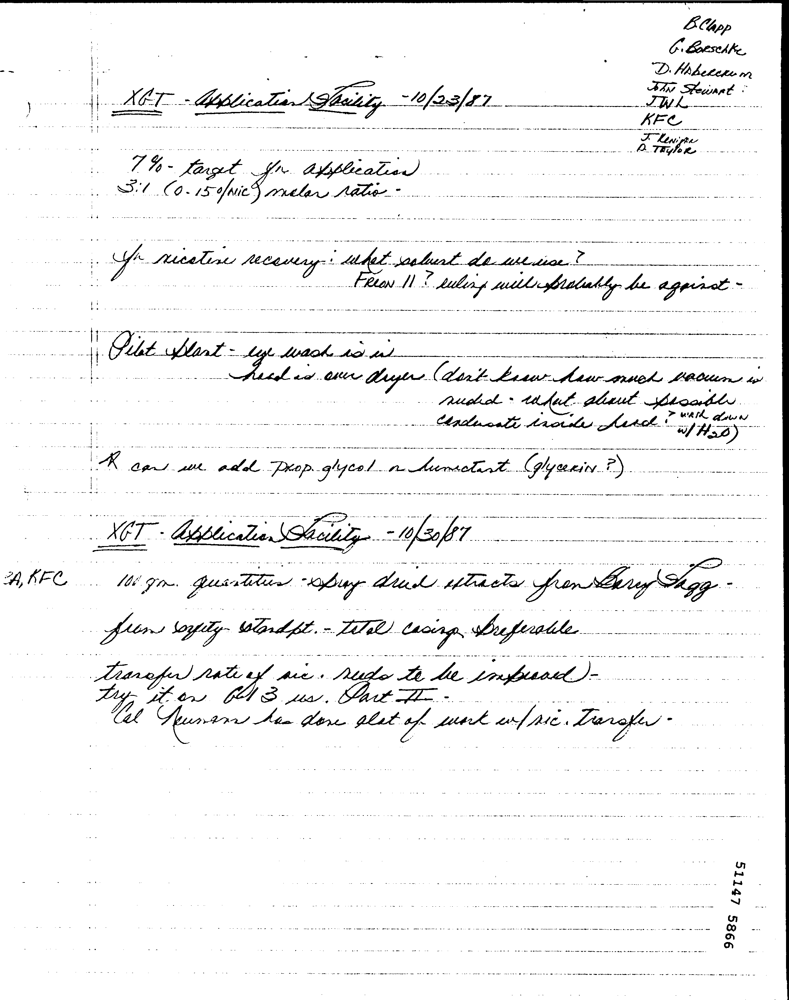 B. Clapp
G. Borschke
D. Haberkern
John Stewart
JWL
KFC
D. Taylor
XGT - Application Facility - 10/23/87
7% - target for application
3:1 (0-150/Nic) molar ratio -
for nicotine recovery: what solvent do we use?
Freon 11? ruling will probably be against -
Pilot plant - eye wash is in
hood is over dryer (don't know how much vacuum is
needed - what about possible
condensate inside hood? wash down
w/ H2O)
can we add prop. glycol or humectant (glycerin?)
XGT - Application Facility - 10/30/87
KFC 100 gm. quantities - spray dried extracts from Barry Fagg -
from safety standpt. - total casing preferable
transfer rate of nic. needs to be improved -
try it on G13 vs. Part II -
Cal Neumann has done alot of work w/ nic. transfer -
51147 5866